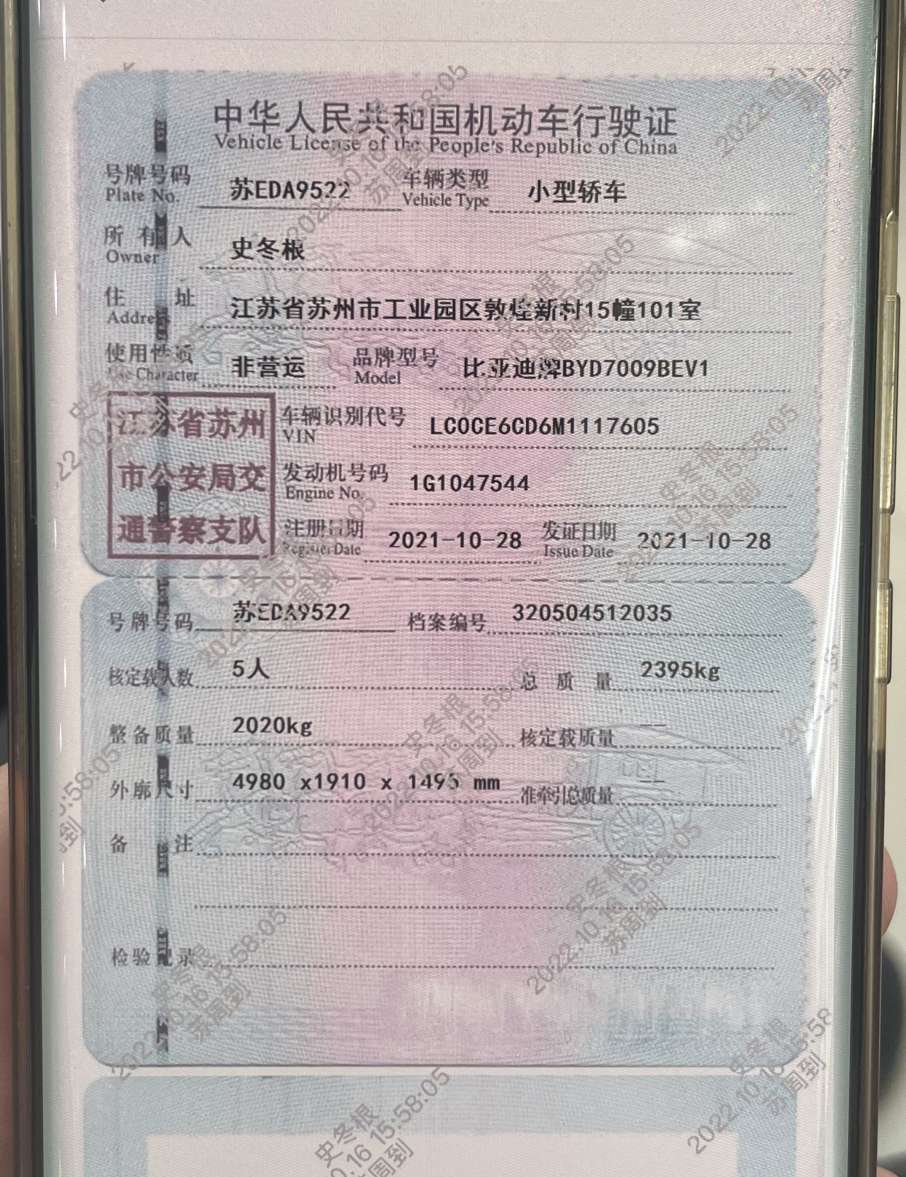 中华人民共和国机动车行驶证
Vehicle License of the People's Republic of China
号牌号码 苏EDA9522 车辆类型 小型轿车
Plate No. Vehicle Type
所有人 史冬根
Owner
住址 江苏省苏州市工业园区敦煌新村15幢101室
Address
使用性质 非营运 品牌型号 比亚迪牌BYD7009BEV1
Use Character Model
江苏省苏州
市公安局交
通警察支队
车辆识别代号 LC0CE6CD6M1117605
VIN
发动机号码 1G1047544
Engine No.
注册日期 2021-10-28 发证日期 2021-10-28
Register Date Issue Date
号牌号码 苏EDA9522 档案编号 320504512035
核定载人数 5人 总质量 2395kg
整备质量 2020kg 核定载质量 —
外廓尺寸 4980 x1910 x 1495 mm 准牵引总质量 —
备注
检验记录
史冬根
2022.10.16 15:58:05
苏周到